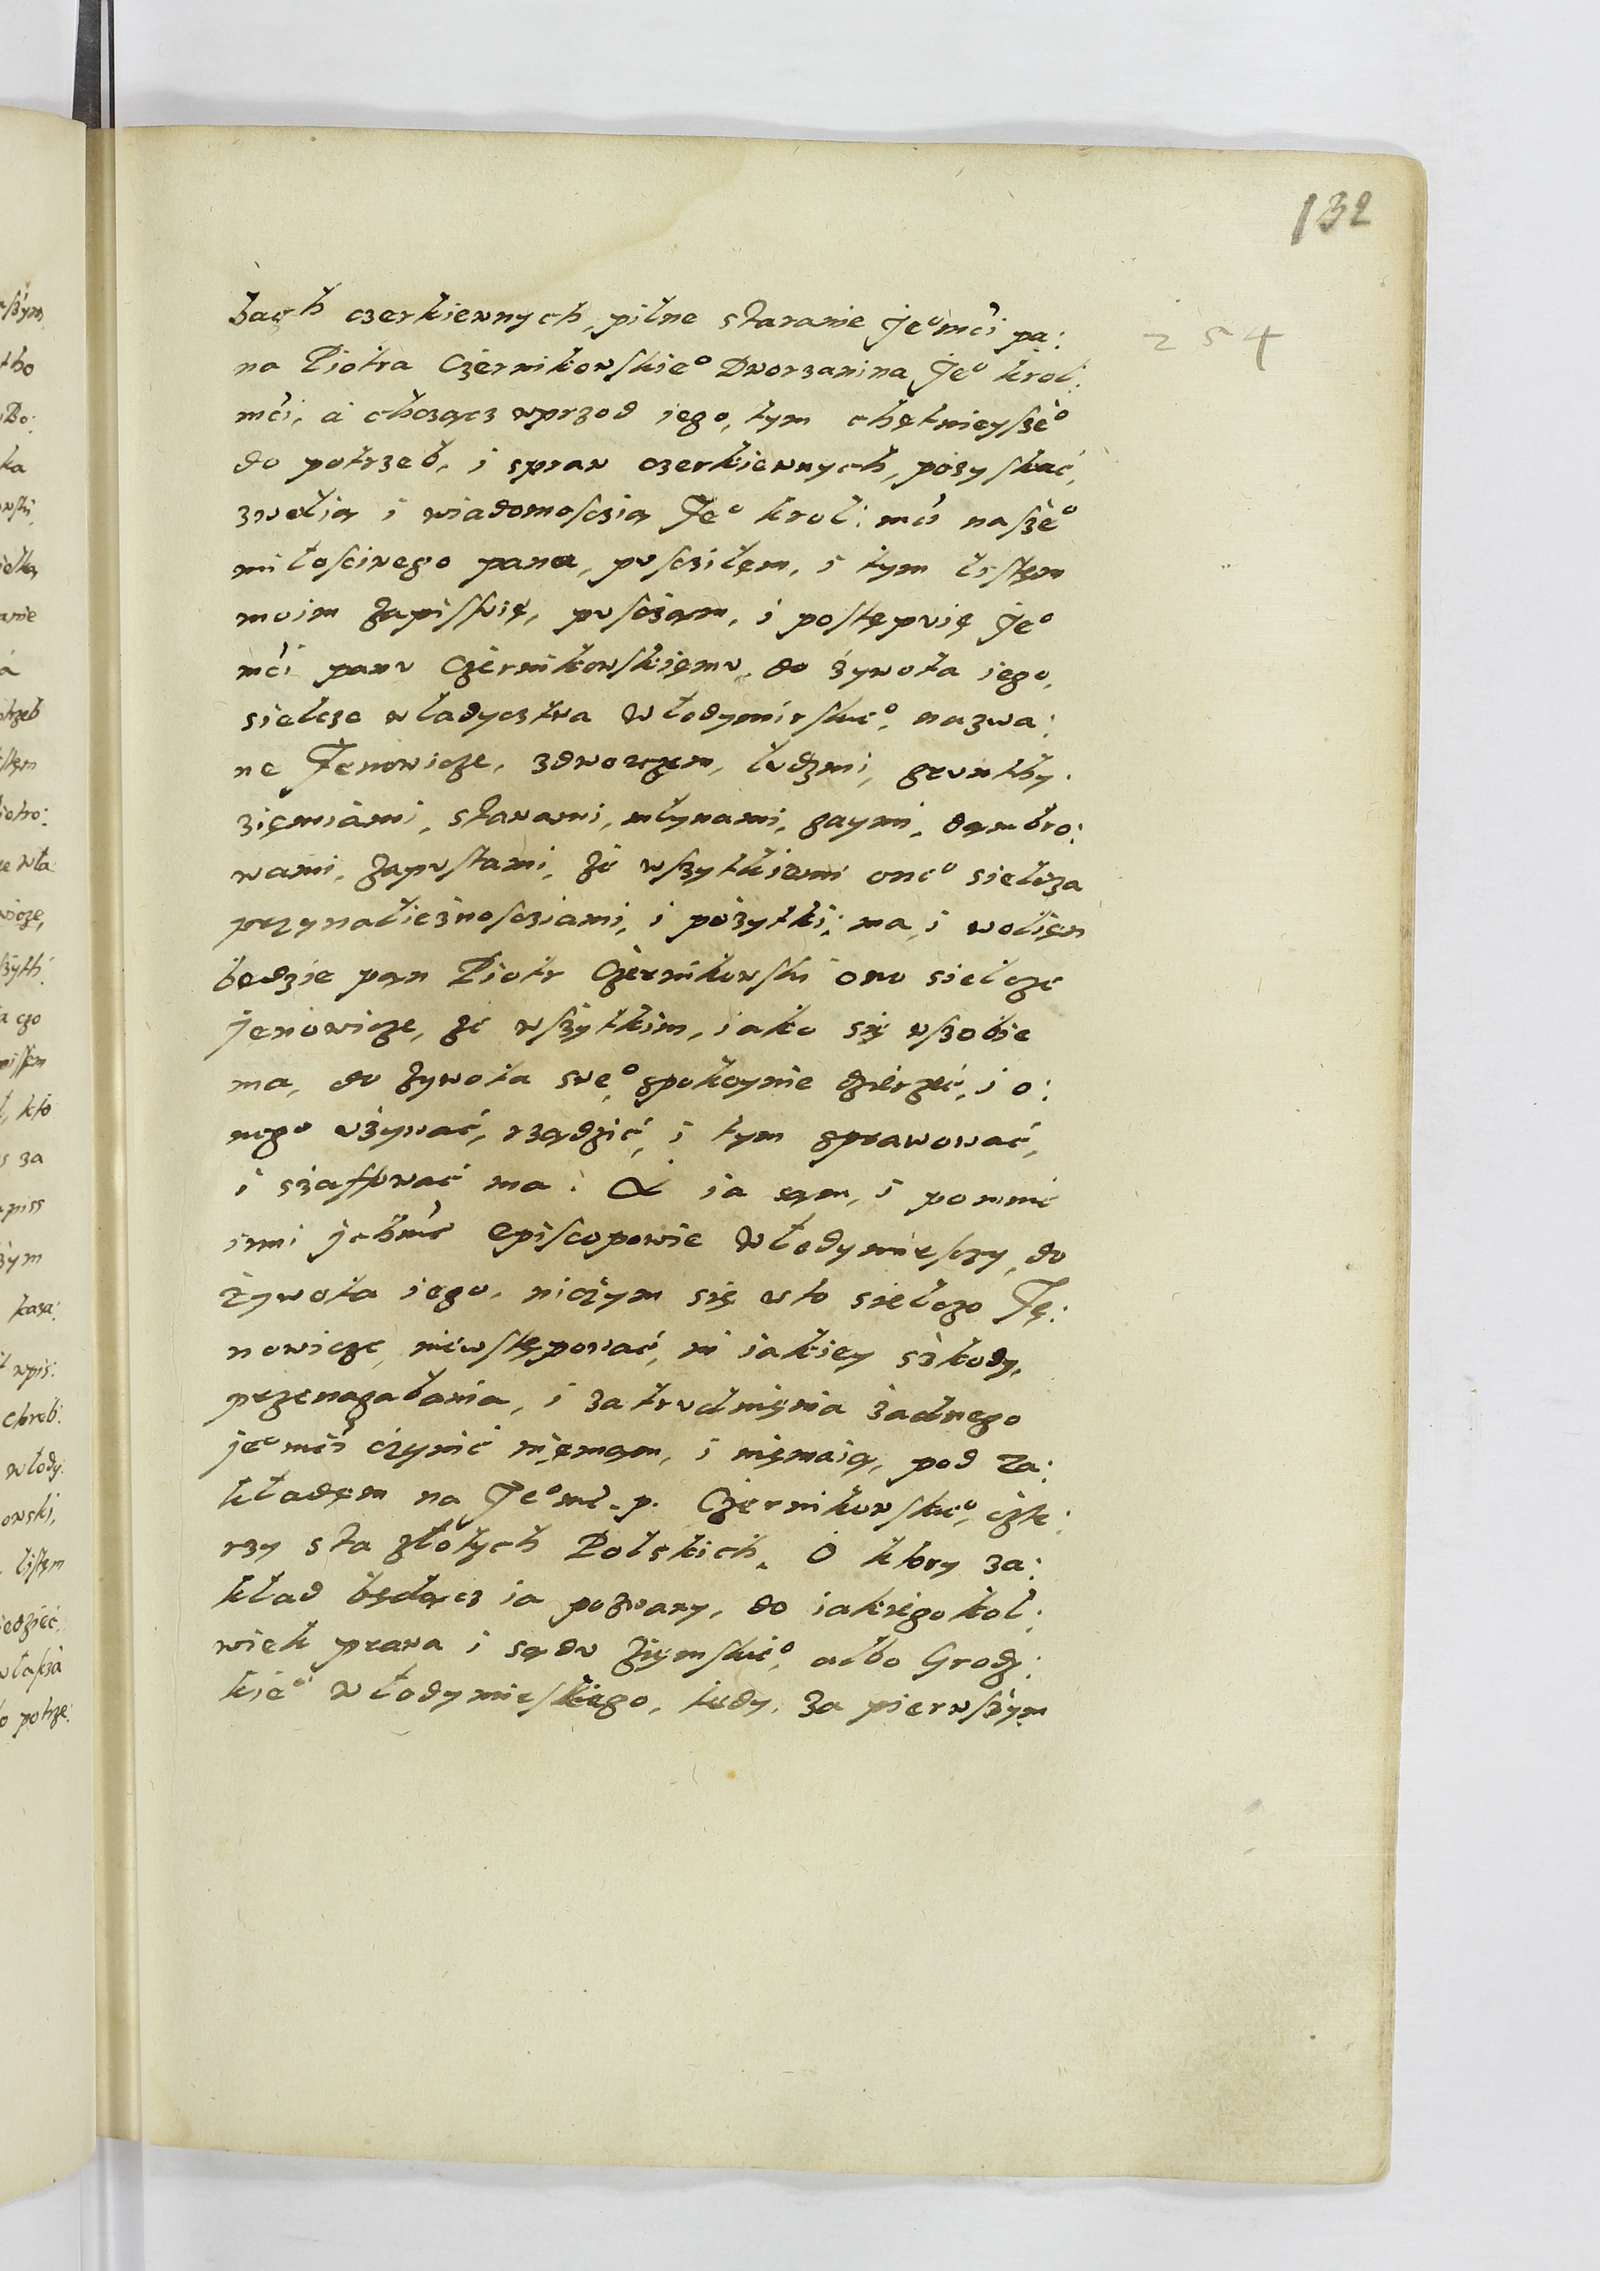 132
254
bach czerkiewnych, pilne staranie Jeº mći pa:
na Piotra Czernikowskieº Dworzanina Jeº krol:
mći, á chczącz wprzod iego, tym chętnieyszeº
do potrzeb, i spraw czerkiewnych, pozyskać,
zwolią i wiadomosczią Jeº krol: mći naszeº
miłosciwego pana, pusczilęm, i tym listęm
moim zapisuię, pusczam, i postępuię Jeº
mći panu Czernikowskięmu, do zywota iego,
sielcze władycztwa Włodymirskieº, nazwa:
ne Jenowicze, zdworczem, ludzmi, grunthy.
zięmiámi, stawami, młynami, gaymi, dąmbro:
wami, zapustami, ze wszytkiemi oneº sielcza
przynalieznosciami, i pozytki; ma, i wolięn
bedzie pąn Piotr Czernikowski ono sielcze
jenowicze, ze wszytkim, iako się wsobie
ma, do zywota sweº spokoynie dzierzeć, i o:
nego uzywać, rządzić, i tym sprawować,
i szaffować ma. A ia sąm, i po mnie
inni ichmć episcopowie Włodymiesczy, do
zywota iego, niczym się wto sielczo Ję:
nowicze niewstępować, ni iakiey szkody,
przenagabania, i zatrudnięnia zadnego
jeº mći czynić nięmąm, i nięmaią, pod za:
kładęm na Jeº mć. p. Czernikowskieº, czte:
rzy sta złotych Polskich. O ktory za:
kład będącz ia pozwany, do iakiegokol:
wiek prawa i sądu zięmskieº, albo Grodz:
kieº Włodymieskiego, tedy, za pierwszym